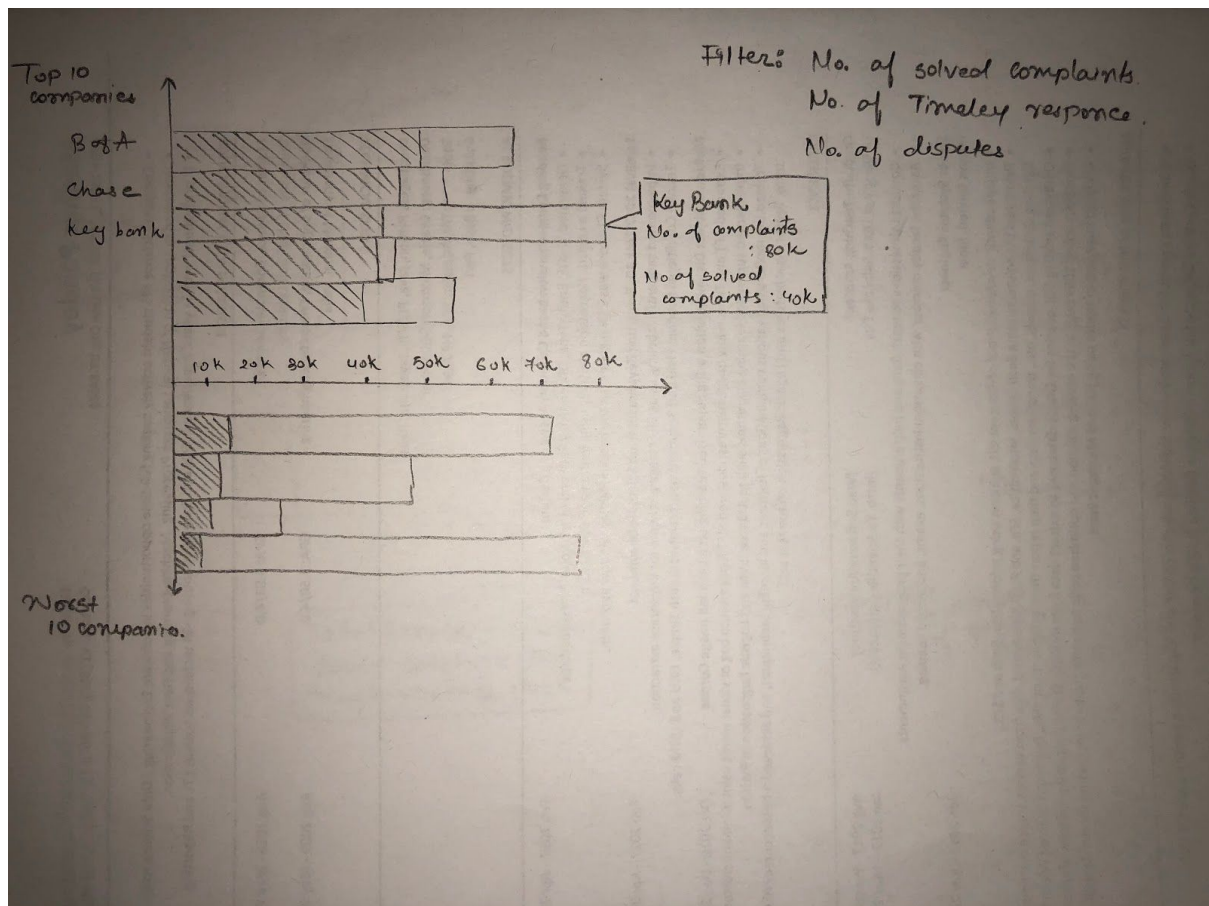 Top 10
companies
B of A
Chase
Key bank
Filter: No. of solved complaints.
No. of Timeley responce.
No. of disputes
Key Bank
No. of complaints
: 80k
No of solved
complaints : 40k
10k 20k 30k 40k 50k 60k 70k 80k
Worst
10 companies.